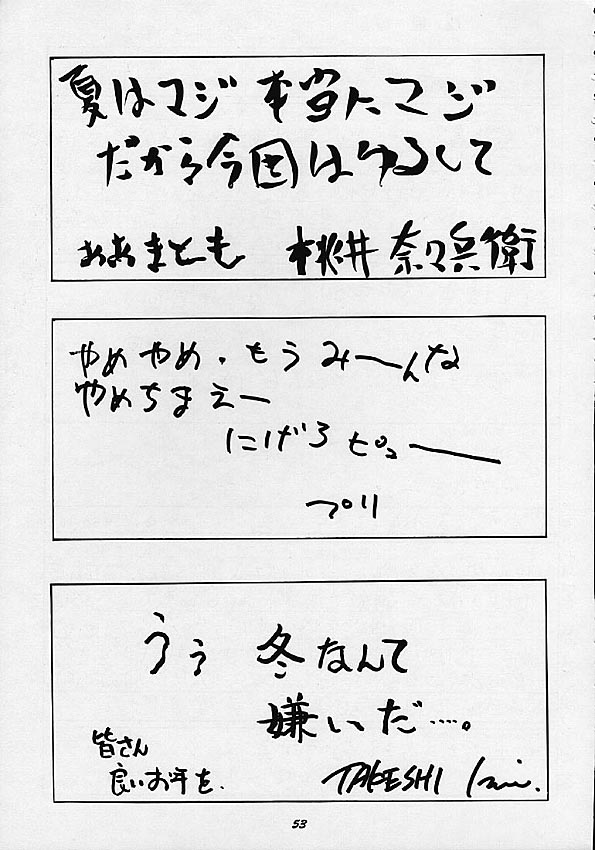 夏はマジ 本当にマジ
だから今回はゆるして
あおまとも 桃井 奈々兵衛
やめやめ、もうみーんな
やめちまえー
にげろ ピューー
プリ
うぅ 冬なんて
嫌いだ……。
皆さん
良いお年を.
TAKESHI
53